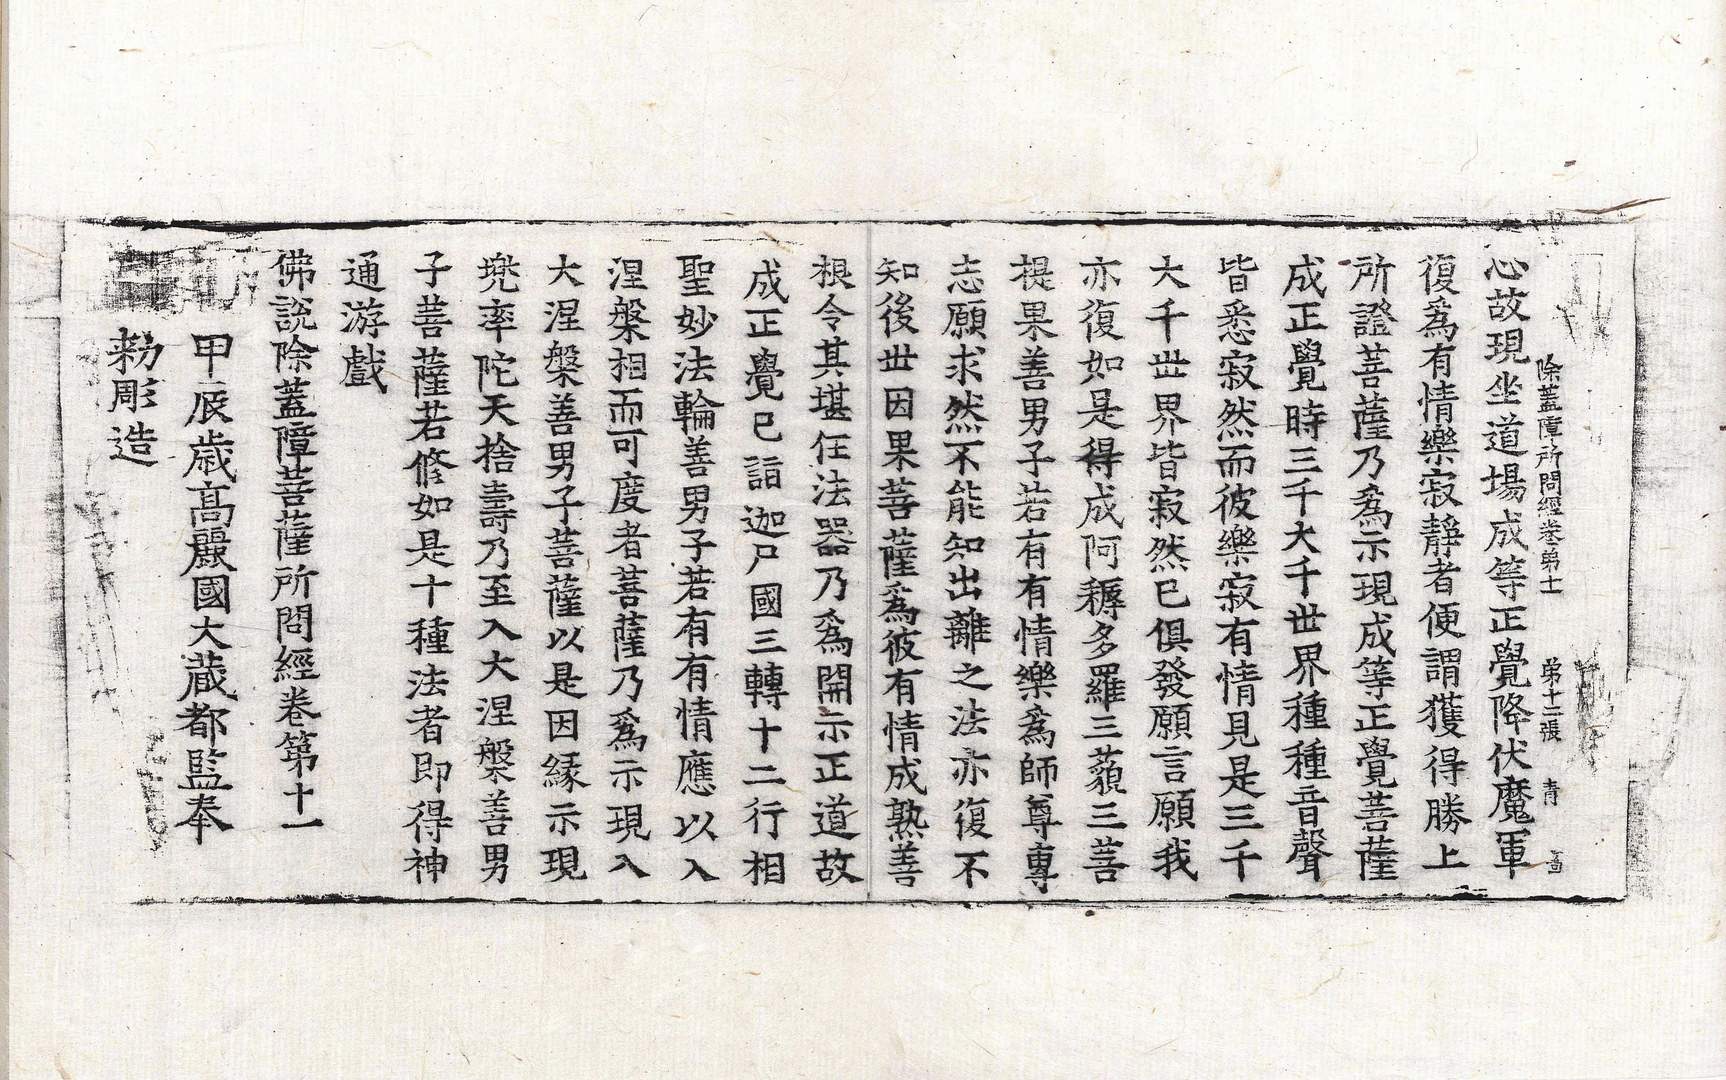 除蓋障所問經卷弟十一 弟十二張 青
心故現坐道場成等正覺降伏魔軍
復爲有情樂寂靜者便謂獲得勝上
所證菩薩乃爲示現成等正覺菩薩
成正覺時三千大千世界種種音聲
皆悉寂然而彼樂寂有情見是三千
大千世界皆寂然已俱發願言願我
亦復如是得成阿耨多羅三藐三菩
提果善男子若有有情樂爲師尊專
志願求然不能知出離之法亦復不
知後世因果菩薩爲彼有情成熟善
根令其堪任法器乃爲開示正道故
成正覺已詣迦尸國三轉十二行相
聖妙法輪善男子若有有情應以入
涅槃相而可度者菩薩乃爲示現入
大涅槃善男子菩薩以是因緣示現
兜率陀天捨壽乃至入大涅槃善男
子菩薩若修如是十種法者即得神
通游戲
佛說除蓋障菩薩所問經卷第十一
甲辰歲高麗國大藏都監奉
勑彫造